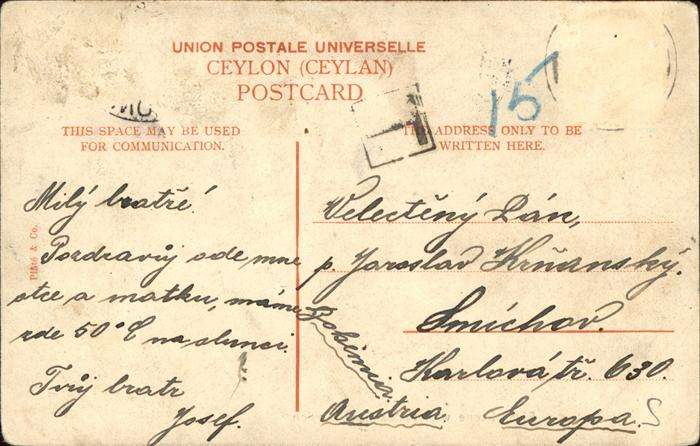 UNION POSTALE UNIVERSELLE
CEYLON (CEYLAN)
POSTCARD
15
T
THIS SPACE MAY BE USED
FOR COMMUNICATION.
THE ADDRESS ONLY TO BE
WRITTEN HERE.
Plâté & Co.
Milý bratře!
Pozdravuj ode mne
otce a matku, máme
zde 50°C na slunci.
Tvůj bratr
Josef.
Velectěný Pán,
p. Jaroslav Krňanský.
Smíchov.
Karlová tř. 630.
Bohimia
Austria Europa